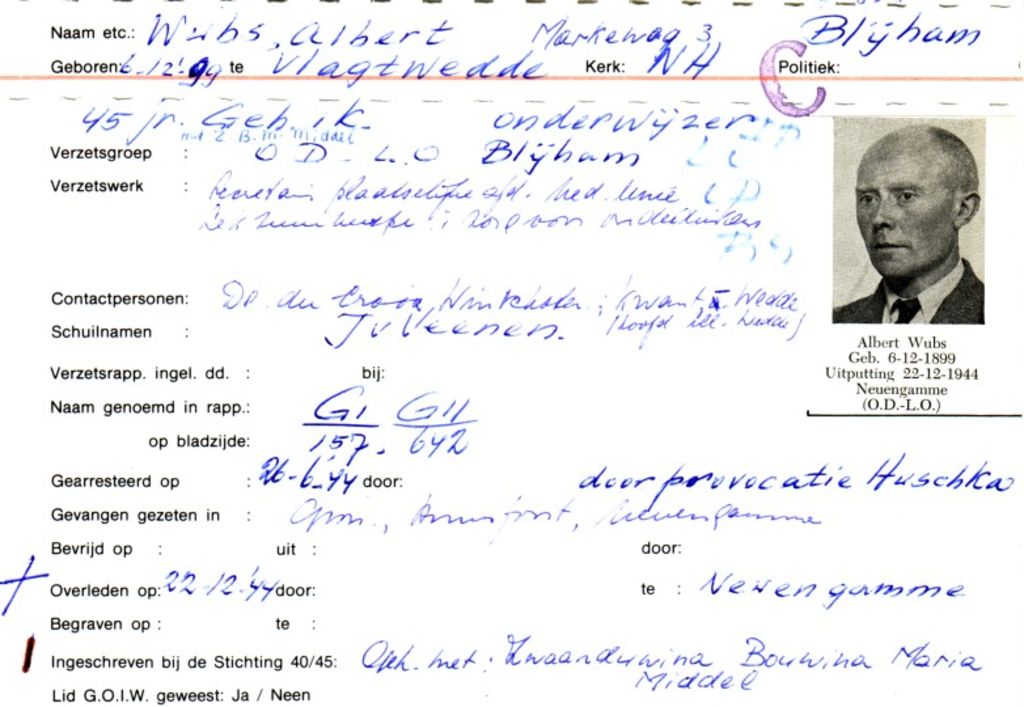 Naam etc.: Wubs, Albert Markeweg 3, Blijham
Geboren: 6-12-'99 te Vlagtwedde Kerk: NH Politiek: C
45 jr. Geh. 1 k. onderwijzer LP
met Z. B. M. Middel
Verzetsgroep : O D - L.O Blijham LO
Verzetswerk : Secretaris plaatselijke afd. Ned. Unie LP
ziekenhulp; zorg voor onderduikers BS
Contactpersonen: Ds. du Croix, Winschoten; Kwant, Wedde
(hoofd ill. Wedde)
Schuilnamen : J v Veenen.
Verzetsrapp. ingel. dd. : bij:
Naam genoemd in rapp.: GI GII
op bladzijde: 157. 642
Gearresteerd op : 26-6-'44 door: door provocatie Huschka
Gevangen gezeten in : Gron., Amersfoort, Neuengamme
Bevrijd op : uit : door:
Overleden op: 22-12-'44 door: te : Neuengamme
Begraven op : te :
Ingeschreven bij de Stichting 40/45: Geh. met: Zwaanduwina Bouwina Maria
Middel
Lid G.O.I.W. geweest: Ja / Neen
Albert Wubs
Geb. 6-12-1899
Uitputting 22-12-1944
Neuengamme
(O.D.-L.O.)